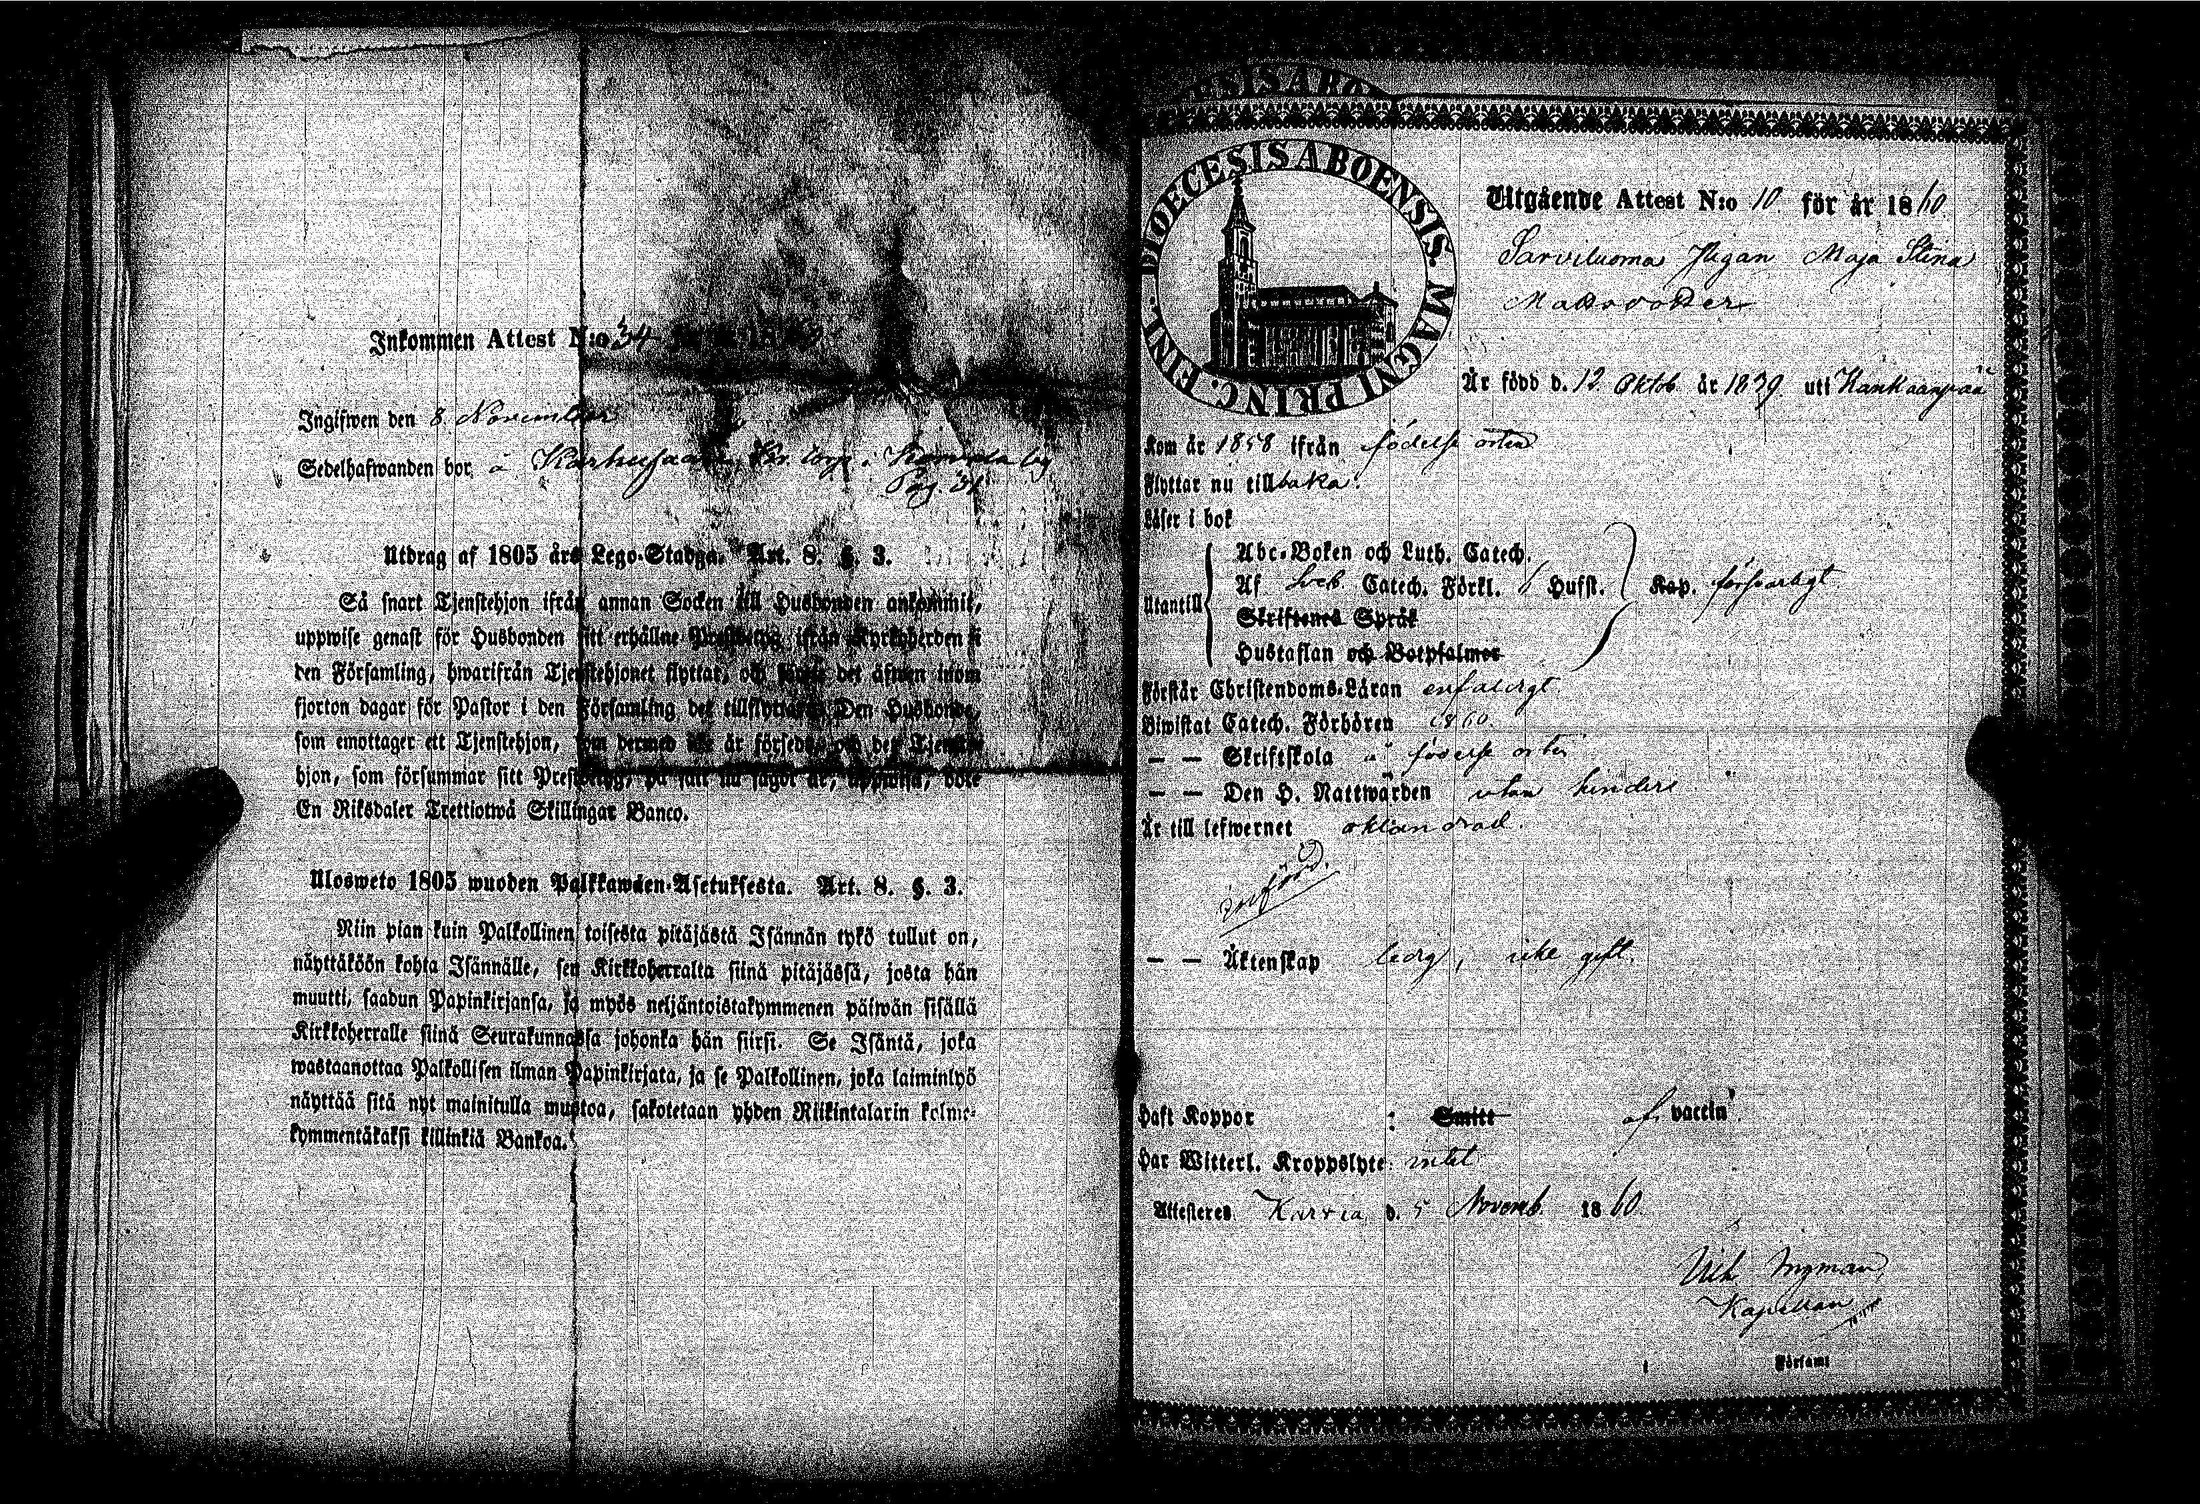 Inkommen Attest N:o 34 för år 18
Ingifwen den 8. November
Sedelhafwanden bor å Karhusaari Kr. torp i Kornula by
Pag. 31
Utdrag af 1805 års Lego-Stadga. Art. 8. §. 3.
Så snart Tjenstehjon ifrån annan Socken till Husbonden ankommit,
uppwise genast för Husbonden sitt erhållne Prestbetyg ifrån Kyrkoherden i
den Församling, hwarifrån Tjenstehjonet flyttat, och det äfwen inom
fjorton dagar för Pastor i den Församling det tillflyttat. Den Husbonde,
som emottager ett Tjenstehjon, som dermed icke är försedt, och det Tjenste-
hjon, som försummar sitt Prestbetyg, på sätt nu sagdt är, uppwisa, böte
En Riksdaler Trettiotwå Skillingar Banco.
Ulosweto 1805 wuoden Palkkawäen-Asetuksesta. Art. 8. §. 3.
Niin pian kuin Palkollinen toisesta pitäjästä Isännän tykö tullut on,
näyttäköön kohta Isännälle, sen Kirkkoherralta siinä pitäjässä, josta hän
muutti, saadun Papinkirjansa, ja myös neljäntoistakymmenen päiwän sisällä
Kirkkoherralle siinä Seurakunnassa johonka hän siirsi. Se Isäntä, joka
wastaanottaa Palkollisen ilman Papinkirjata, ja se Palkollinen, joka laiminlyö
näyttää sitä nyt mainitulla muotoa, sakotetaan yhden Riikintalarin kolme-
kymmentäkaksi killinkiä Bankoa.
DIOECESIS ABOENSIS. MAGNI PRINC. FINL.
Utgående Attest N:o 10 för år 1860
Sarviluoma Pigan Maja Stina
Mattsdotter
Är född d. 12 Oktob. år 1839. uti Kankaanpää
Kom år 1858 ifrån födelse orten
Flyttar nu tillbaka.
Läser i bok
Abc-Boken och Luth. Catech.
Utantill Af Sveb. Catech. Förkl. 6 Hufst. Kap. försvarligt
Skriftenes Språk
Hustaflan och Botpsalmer
Förstår Christendoms-Läran enfaldigt
Biwistat Catech. Förhören 1860.
— — Skriftskola å födelse orten
— — Den H. Nattwarden utan hinder
Är till lefwernet oklandrad.
införd.
— — Äktenskap ledig, icke gift.
Haft Koppor : Smitt af vaccin
Har Witterl. Kroppslyte: intet
Attesteres Karvia d. 5 Novemb. 1860.
Vilh. Ingman,
Kapellan
i Församl